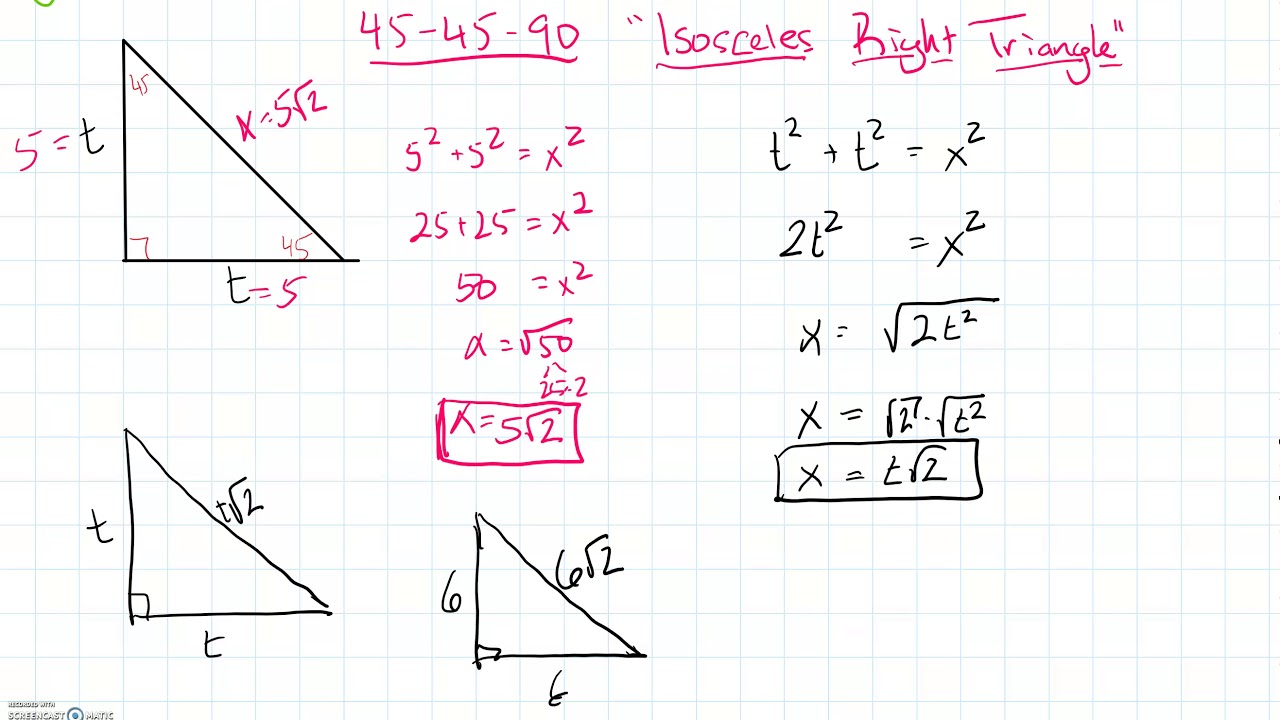 45-45-90 "Isosceles Right Triangle"
45
5 = t
x=5√2
45
t = 5
5² + 5² = x²
25 + 25 = x²
50 = x²
x = √50
25·2
x = 5√2
t² + t² = x²
2t² = x²
x = √2t²
x = √2 · √t²
x = t√2
t
t√2
t
6
6√2
6
RECORDED WITH
SCREENCAST MATIC